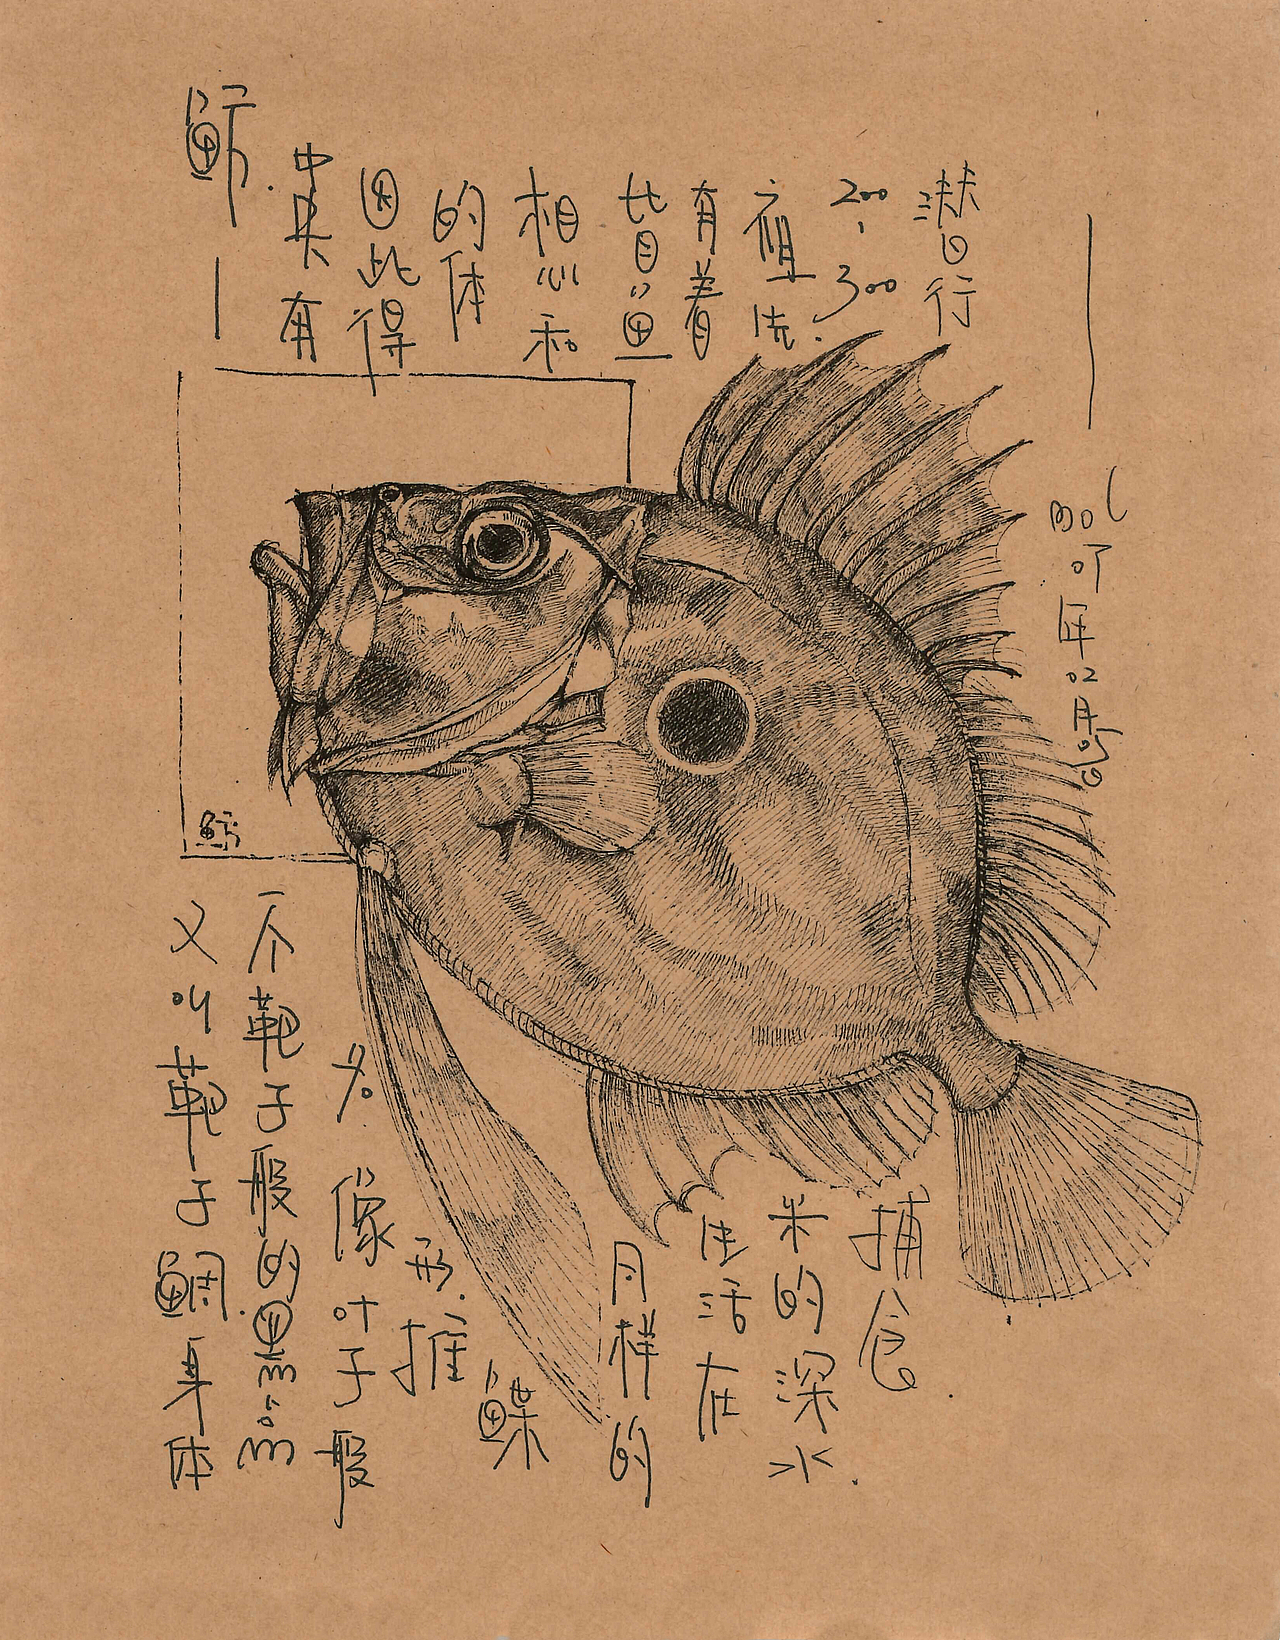 鲂.
又叫靶子鲷.身体
中央有
一个靶子般的黑点
因此得
名.像叶子般
的体
形.推
想和
鲽
比目鱼
有着
同样的
祖先.
生活在
200-300
米的深水.
潜行
捕食.
年02月05日
鲂